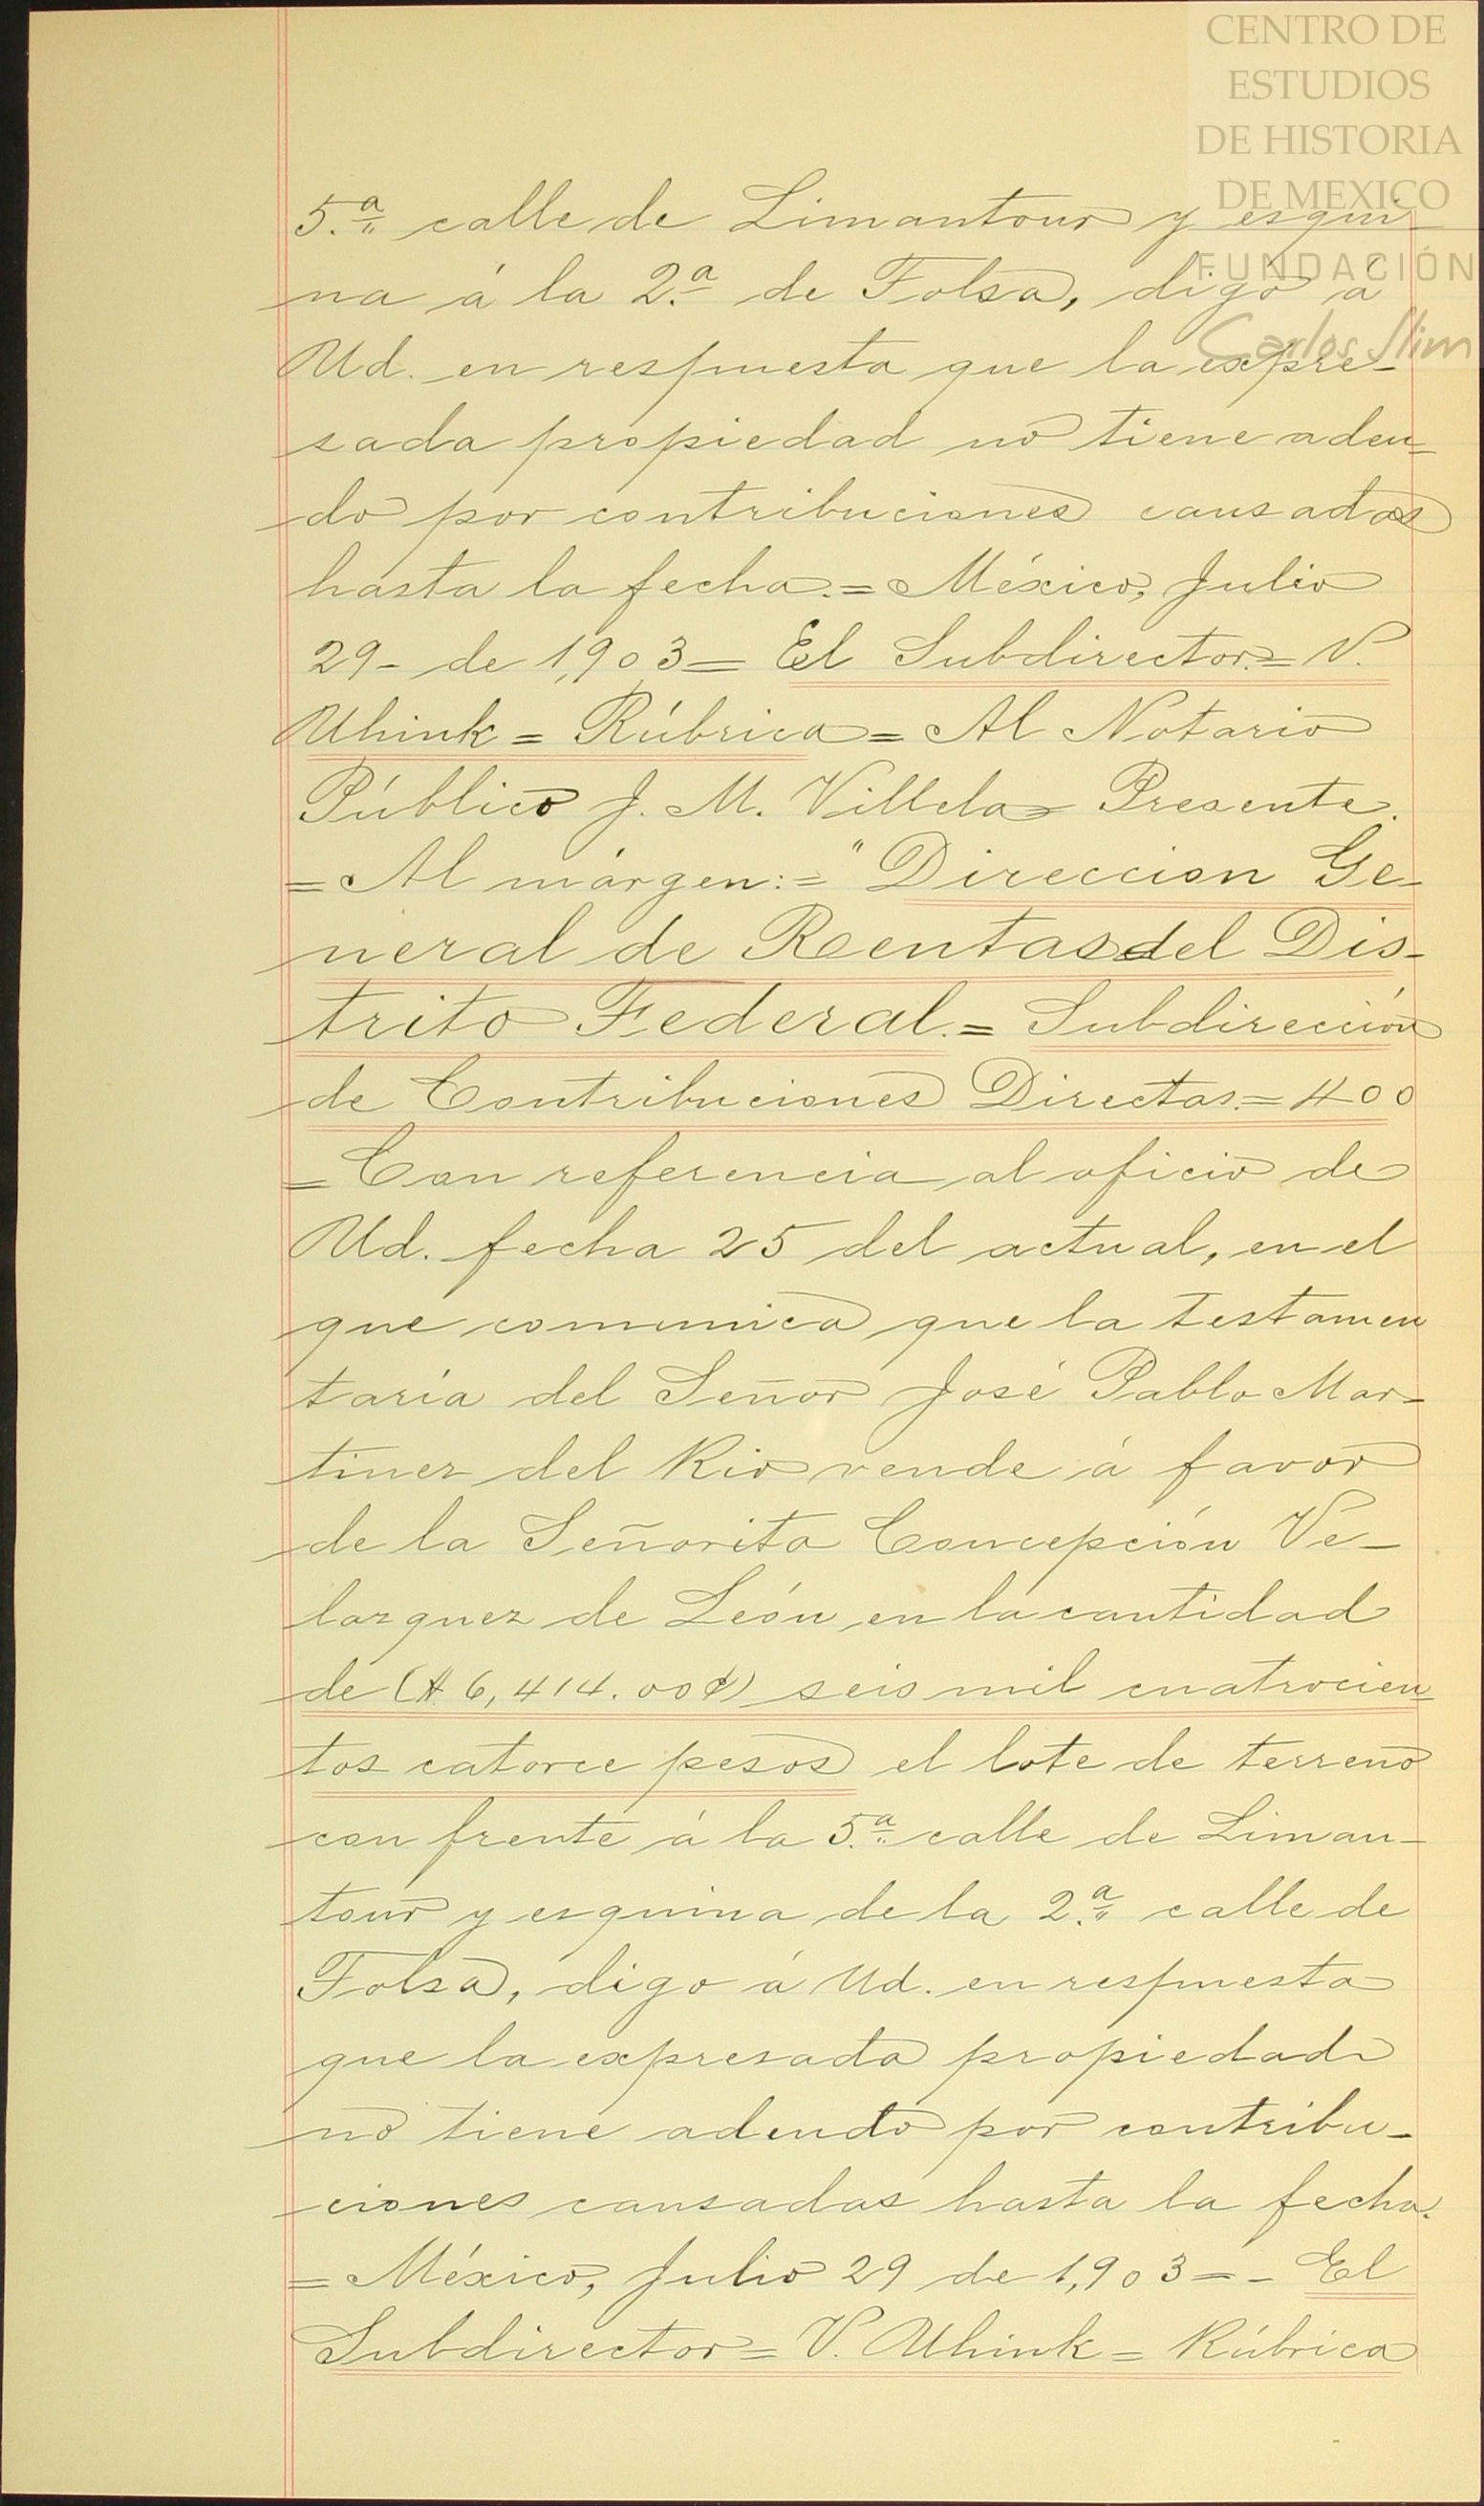 CENTRO DE
ESTUDIOS
DE HISTORIA
DE MEXICO
FUNDACIÓN
Carlos Slim
5.ª calle de Limantour y esqui-
na á la 2.ª de Tolsa, digo á
Ud. en respuesta que la expre-
sada propiedad no tiene adeu-
do por contribuciones causadas
hasta la fecha.= México, Julio
29- de 1,903= El Subdirector.= V.
Uhink = Rúbrica = Al Notario
Público J. M. Villela= Presente.
= Al márgen:= "Direccion Ge-
neral de Rentas del Dis-
trito Federal.= Subdirección
de Contribuciones Directas.= 400
= Con referencia al oficio de
Ud. fecha 25 del actual, en el
que comunica que la testamen
taría del Señor José Pablo Mar-
tinez del Rio vende á favor
de la Señorita Concepción Ve-
lazquez de León en la cantidad
de ($ 6,414.00¢) seis mil cuatrocien-
tos catorce pesos el lote de terreno
con frente á la 5.ª calle de Liman-
tour y esquina de la 2.ª calle de
Tolsa, digo á Ud. en respuesta
que la expresada propiedad
no tiene adeudo por contribu-
ciones causadas hasta la fecha.
= México, Julio 29 de 1,903 = - El
Subdirector = V. Uhink = Rúbrica